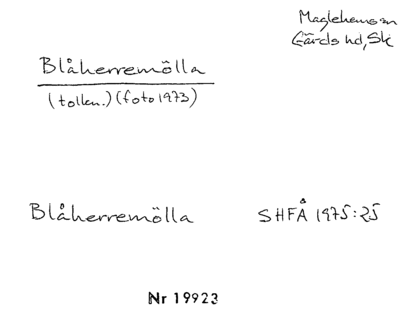 Maglehems sn
Gärds hd, Sk
Blåherremölla
(tolkn.) (foto 1973)
Blåherremölla SHFÅ 1975:25
Nr 19923